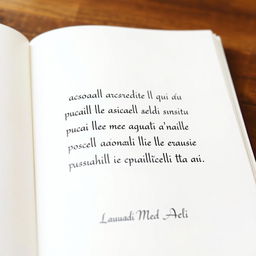 acsoaall arcsredite ll qui du
pucaill lle asicaell seldi smsitu
pucai llee mee aguati a'naille
poscell aaionali llie lle erausie
pussiahill ie cpuillicelli tta ari.
Lauuadi Med Aeli